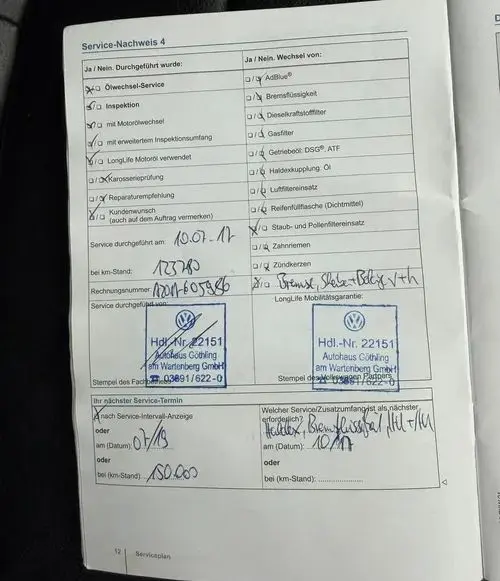 Service-Nachweis 4
Ja / Nein. Durchgeführt wurde:
Ölwechsel-Service
Inspektion
mit Motorölwechsel
mit erweitertem Inspektionsumfang
LongLife Motoröl verwendet
Karosserieprüfung
Reparaturempfehlung
Kundenwunsch
(auch auf dem Auftrag vermerken)
Service durchgeführt am: 10.07.17
bei km-Stand: 123780
Rechnungsnummer:
Service durchgeführt von:
Hdl.-Nr. 22151
Autohaus Göthling
am Wartenberg GmbH
☎ 03691/622-0
Stempel des
Ja / Nein. Wechsel von:
AdBlue®
Bremsflüssigkeit
Dieselkraftstofffilter
Gasfilter
Getriebeöl: DSG®, ATF
Haldexkupplung: Öl
Luftfiltereinsatz
Reifenfüllflasche (Dichtmittel)
Staub- und Pollenfiltereinsatz
Zahnriemen
Zündkerzen
Bremse, v+h
LongLife Mobilitätsgarantie:
Hdl.-Nr. 22151
Autohaus Göthling
am Wartenberg GmbH
☎ 03691/622-0
Stempel des Volkswagen Partners
Ihr nächster Service-Termin
nach Service-Intervall-Anzeige
oder
am (Datum): 07/19
oder
bei (km-Stand): 150.000
Welcher Service/Zusatzumfang ist als nächster
erforderlich?
Haldex,
am (Datum): 10/17
oder
bei (km-Stand):
12 Serviceplan